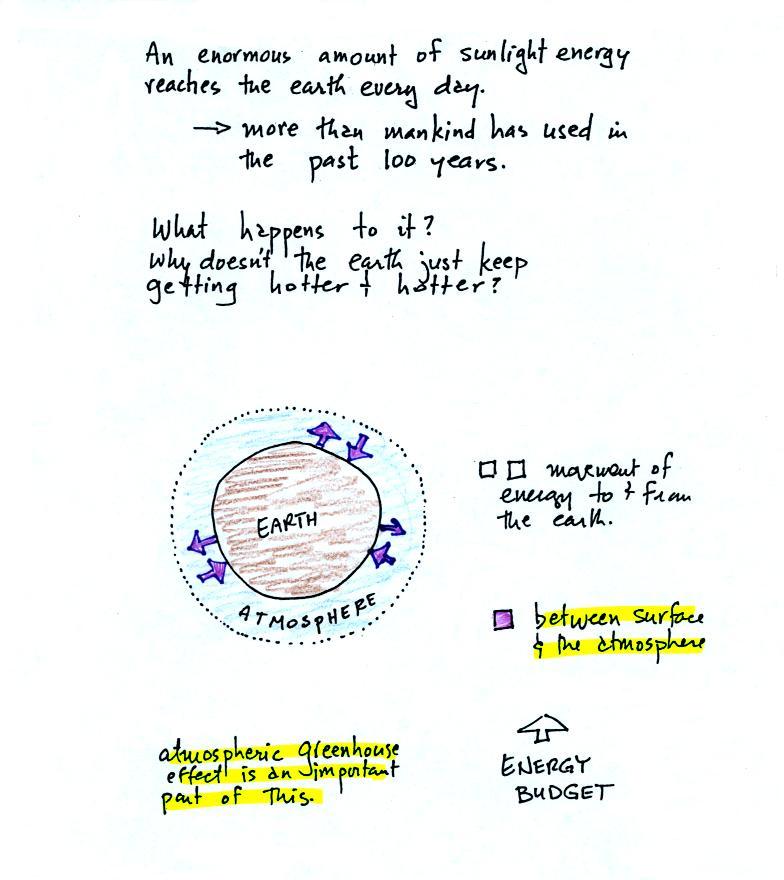 An enormous amount of sunlight energy
reaches the earth every day.
→ more than mankind has used in
the past 100 years.
What happens to it?
Why doesn't the earth just keep
getting hotter & hotter?
EARTH
ATMOSPHERE
movement of
energy to & from
the earth.
between surface
& the atmosphere
atmospheric greenhouse
effect is an important
part of this.
ENERGY
BUDGET